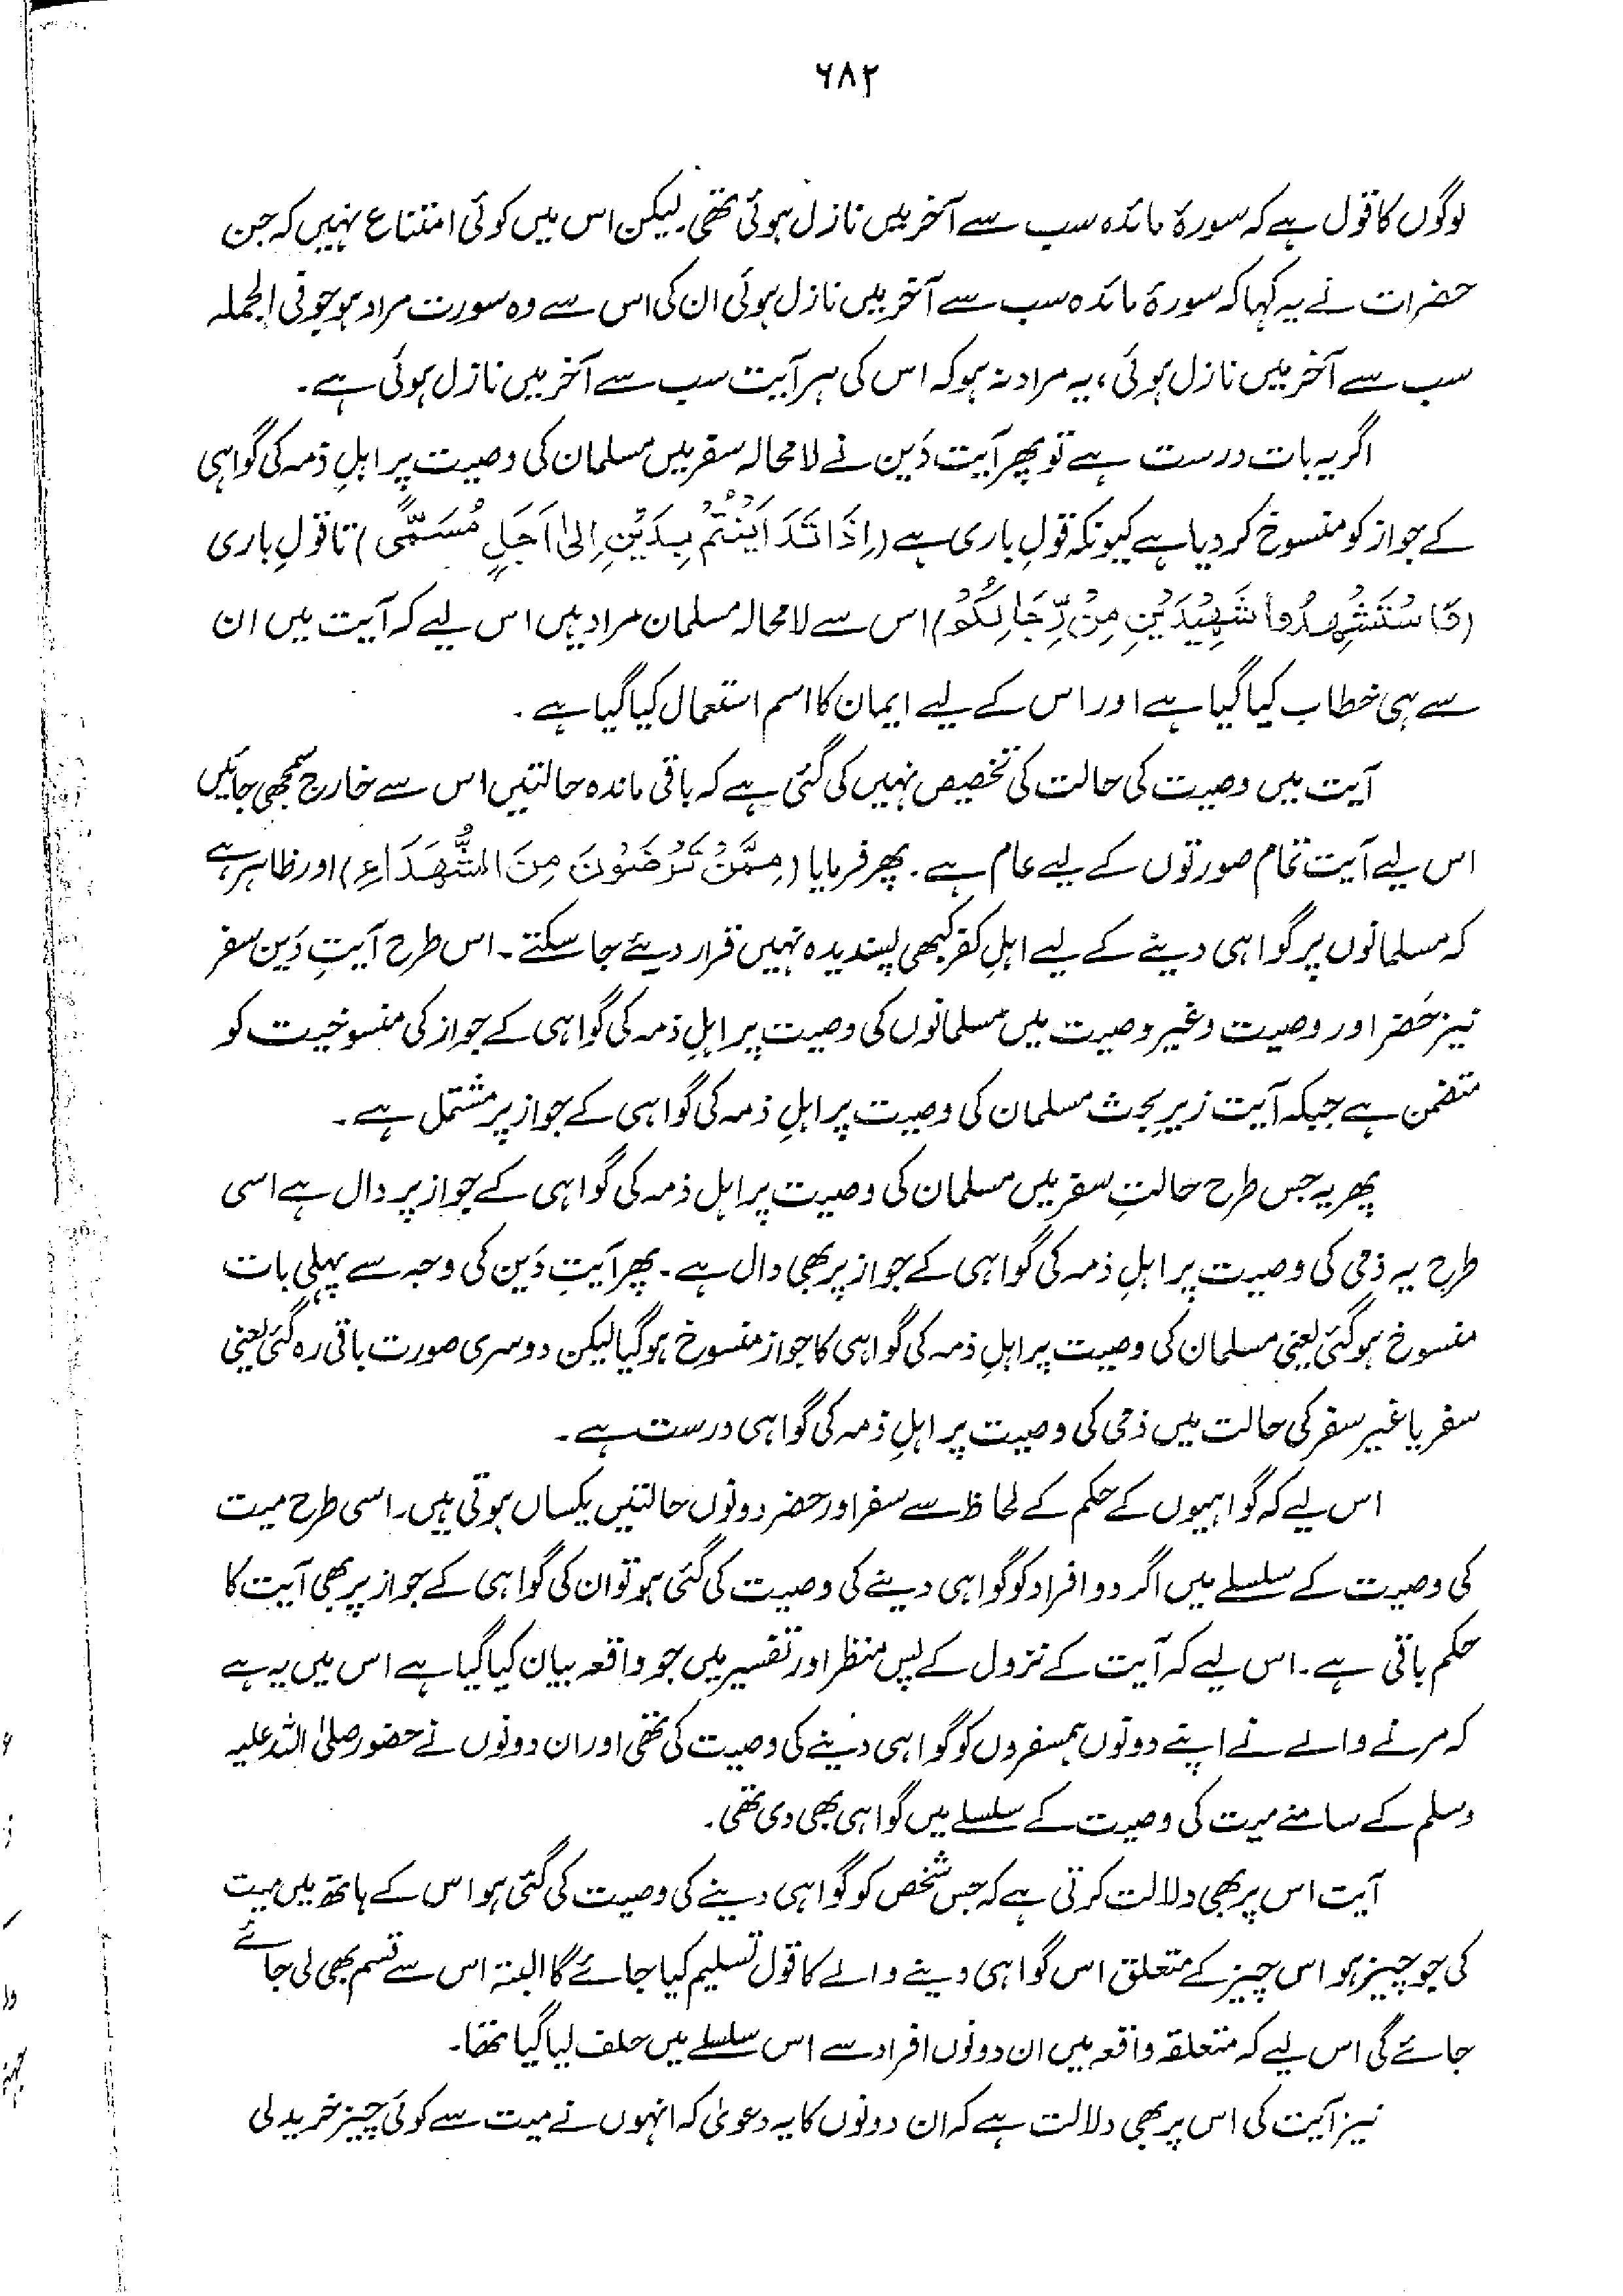 ۶۸۲
لوگوں کا قول ہے کہ سورۂ مائدہ سب سے آخر میں نازل ہوئی تھی۔ لیکن اس میں کوئی امتناع نہیں کہ جن
حضرات نے یہ کہا کہ سورۂ مائدہ سب سے آخر میں نازل ہوئی ان کی اس سے وہ سورت مراد ہو جو فی الجملہ
سب سے آخر میں نازل ہوئی، یہ مراد نہ ہو کہ اس کی ہر آیت سب سے آخر میں نازل ہوئی ہے۔
اگر یہ بات درست ہے تو پھر آیت دَین نے لامحالہ سفر میں مسلمان کی وصیت پر اہلِ ذمہ کی گواہی
کے جواز کو منسوخ کر دیا ہے کیونکہ قولِ باری ہے (اِذَا تَدَایَنْتُمْ بِدَیْنٍ اِلیٰ اَجَلٍ مُسَمًّی) تا قولِ باری
(فَاسْتَشْهِدُوا شَهِیْدَیْنِ مِنْ رِّجَالِکُمْ) اس سے لامحالہ مسلمان مراد ہیں اس لیے کہ آیت میں ان
سے ہی خطاب کیا گیا ہے اور اس کے لیے ایمان کا اسم استعمال کیا گیا ہے۔
آیت میں وصیت کی حالت کی تخصیص نہیں کی گئی ہے کہ باقی ماندہ حالتیں اس سے خارج سمجھی جائیں
اس لیے آیت تمام صورتوں کے لیے عام ہے۔ پھر فرمایا (مِمَّنْ تَرْضَوْنَ مِنَ الشُّهَدَاءِ) اور ظاہر ہے
کہ مسلمانوں پر گواہی دینے کے لیے اہلِ کفر کبھی پسندیدہ نہیں قرار دیئے جا سکتے۔ اس طرح آیتِ دَین سفر
نیز حَضر اور وصیت وغیر وصیت میں مسلمانوں کی وصیت پر اہلِ ذمہ کی گواہی کے جواز کی منسوخیت کو
متضمن ہے جبکہ آیت زیرِ بحث مسلمان کی وصیت پر اہلِ ذمہ کی گواہی کے جواز پر مشتمل ہے۔
پھر یہ جس طرح حالتِ سفر میں مسلمان کی وصیت پر اہل ذمہ کی گواہی کے جواز پر دال ہے اسی
طرح یہ ذمی کی وصیت پر اہلِ ذمہ کی گواہی کے جواز پر بھی دال ہے۔ پھر آیتِ دَین کی وجہ سے پہلی بات
منسوخ ہو گئی یعنی مسلمان کی وصیت پر اہلِ ذمہ کی گواہی کا جواز منسوخ ہو گیا لیکن دوسری صورت باقی رہ گئی یعنی
سفر یا غیر سفر کی حالت میں ذمی کی وصیت پر اہلِ ذمہ کی گواہی درست ہے۔
اس لیے کہ گواہیوں کے حکم کے لحاظ سے سفر اور حضر دونوں حالتیں یکساں ہوتی ہیں۔ اسی طرح میت
کی وصیت کے سلسلے میں اگر دو افراد کو گواہی دینے کی وصیت کی گئی ہو تو ان کی گواہی کے جواز پر بھی آیت کا
حکم باقی ہے۔ اس لیے کہ آیت کے نزول کے پس منظر اور تفسیر میں جو واقعہ بیان کیا گیا ہے اس میں یہ ہے
کہ مرنے والے نے اپنے دونوں ہمسفروں کو گواہی دینے کی وصیت کی تھی اور ان دونوں نے حضور صلی اللہ علیہ
وسلم کے سامنے میت کی وصیت کے سلسلے میں گواہی بھی دی تھی۔
آیت اس پر بھی دلالت کرتی ہے کہ جس شخص کو گواہی دینے کی وصیت کی گئی ہو اس کے ہاتھ میں میت
کی جو چیز ہو اس چیز کے متعلق اس گواہی دینے والے کا قول تسلیم کیا جائے گا البتہ اس سے قسم بھی لی جائے
جائے گی اس لیے کہ متعلقہ واقعہ میں ان دونوں افراد سے اس سلسلے میں حلف لیا گیا تھا۔
نیز آیت کی اس پر بھی دلالت ہے کہ ان دونوں کا یہ دعویٰ کہ انہوں نے میت سے کوئی چیز خرید لی